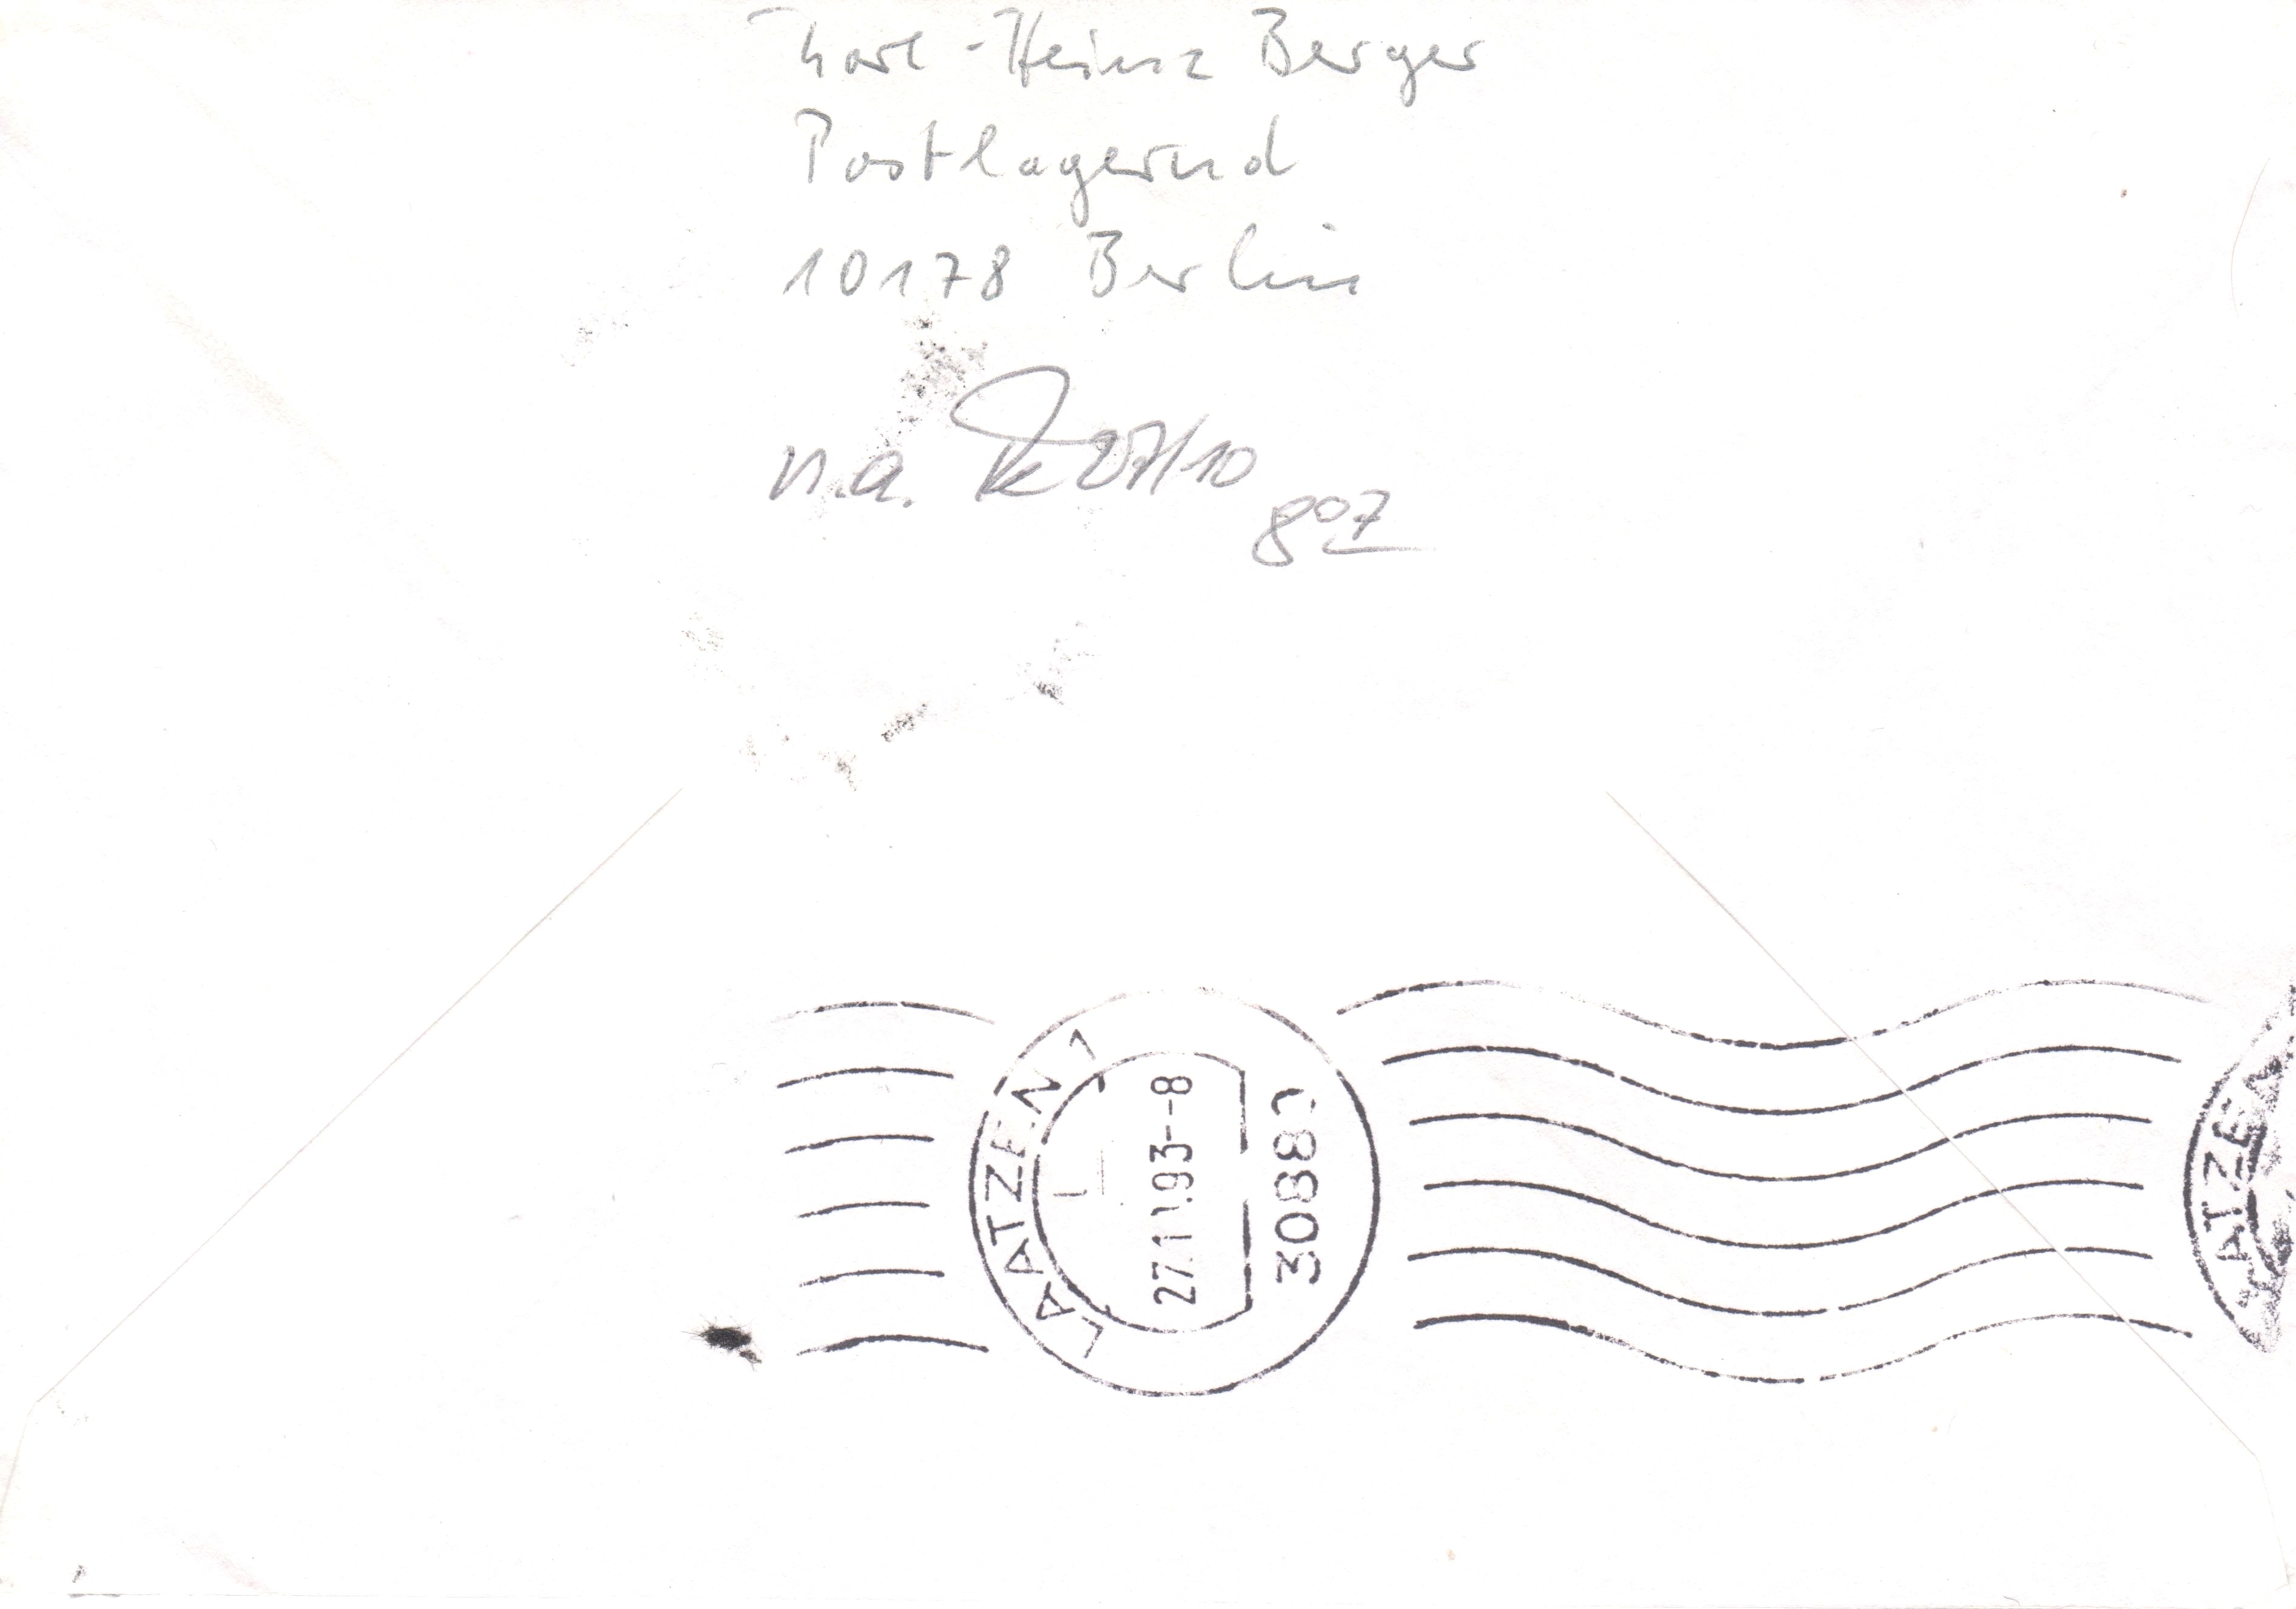 Karl-Heinz Berger
Postlagernd
10178 Berlin
n.a. 27/10
8 07
LAATZEN 1
27.11.93-8
30880
ATZEN